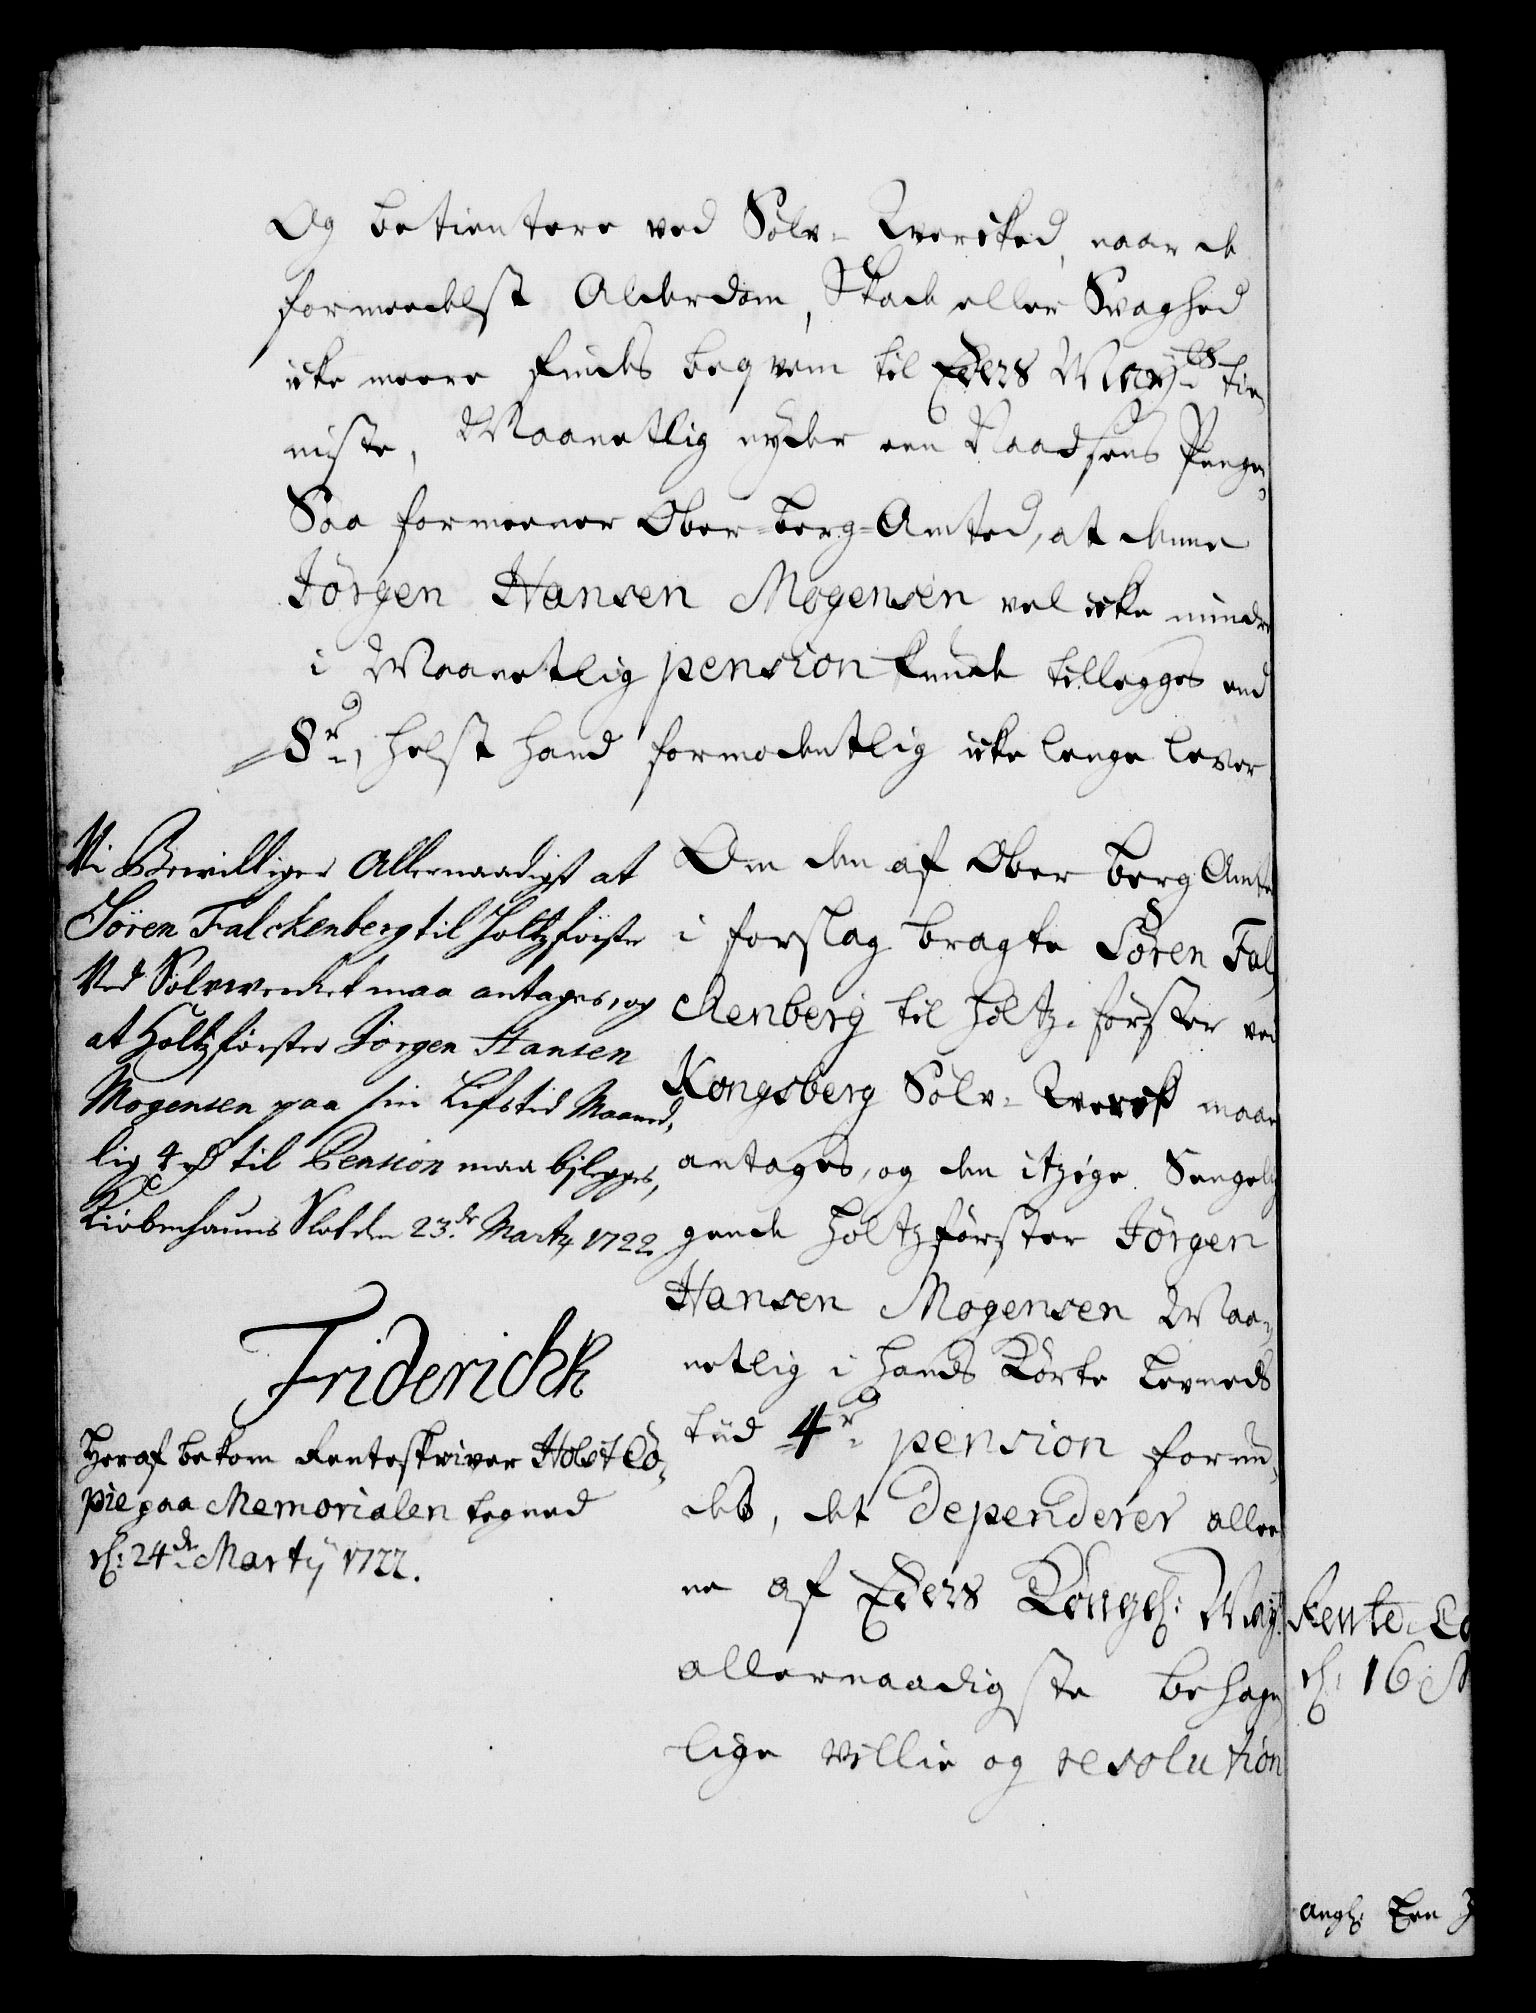 Og betientere ved Sølv-Zwercked, naar de
formeedelst Alderdom, Skade eller Svaghed
icke meere findes beqvem til Eders May:ts tie-
niste, Maanetlig nyder een Naadsens Penge,
Saa formeener Ober-berg-Amted, at denne
Jörgen Hansen Mogensen vel icke mindre
i Maanetlig pension kunde tillegges end
8 r, helst hand formodentlig icke lenge lever
Vi Bewilliger Allernaadigst at
Søren Falckenberg til Holtzförster
Ved Sølvverket maa antages, og
at Holtzförster Jörgen Hansen
Mogensen paa sin Lifstid Maaned,
lig 4 rd til Pension maa bjlegges,
Kiøbenhauns Slot den 23de Marty 1722
Friderich R
Heraf bekom Renteskriver Holst Co-
pie paa Memorialen tegned
d: 24de Marty 1722.
Om den af Ober berg Amte
i forslag bragte Sören Fal
ckenberg til Holtz-förster ved
Kongsberg Sølv-Zwerck maae
antages, og den itzige Sengelig
gende Holtzförster Jörgen
Hansen Mogensen Maa-
netlig i hands Korte Levneds
tiid 4 r pension forun-
des, det dependerer allee
ne af Eders Kongel: May:
allernaadigste behage
lige villie og resolution
Rente Ca
d: 16 M
angl: Een J